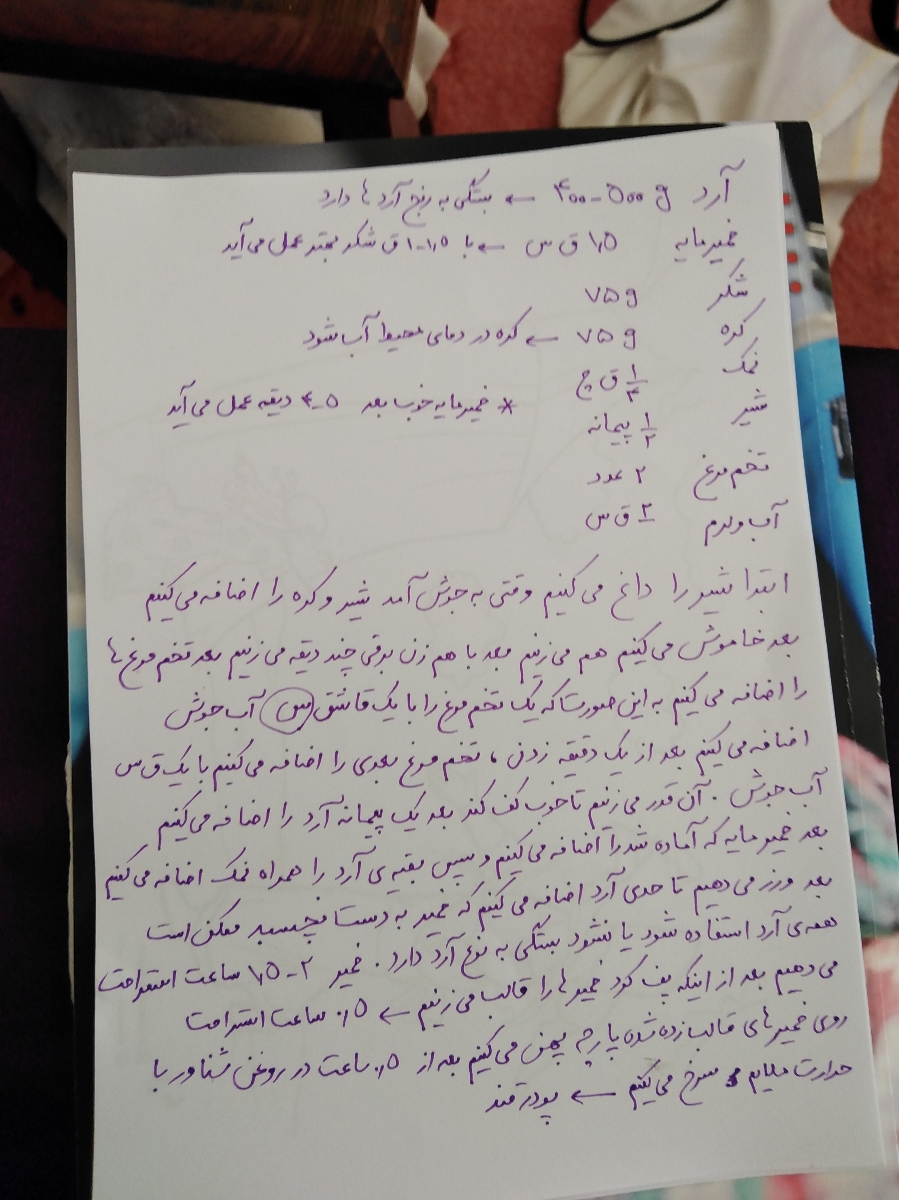 آرد ۴۰۰-۵۰۰ g ← بستگی به نوع آرد ها دارد
خمیرمایه ۱/۵ ق س ← با ۱-۱/۵ ق شکر بهتر عمل می آید
شکر ۷۵ g
کره ۷۵ g ← کره در دمای محیط آب شود
نمک ۱/۴ ق چ
* خمیرمایه خوب بعد ۴-۵ دیقه عمل می آید
شیر ۱/۲ پیمانه
تخم مرغ ۲ عدد
آب ولرم ۲ ق س
ابتدا شیر را داغ می کنیم وقتی به جوش آمد شیر و کره را اضافه می کنیم
بعد خاموش می کنیم هم می زنیم بعد با هم زن برقی چند دیقه می زنیم بعد تخم مرغ ها
را اضافه می کنیم به این صورت که یک تخم مرغ را با یک قاشق س آب جوش
اضافه می کنیم بعد از یک دقیقه زدن ، تخم مرغ بعدی را اضافه می کنیم با یک ق س
آب جوش . آن قدر می زنیم تا خوب کف کند بعد یک پیمانه آرد را اضافه می کنیم
بعد خمیر مایه که آماده شد را اضافه می کنیم و سپس بقیه ی آرد را همراه نمک اضافه می کنیم
بعد ورز می دهیم تا حدی آرد اضافه می کنیم که خمیر به دست نچسبد ممکن است
همه ی آرد استفاده شود یا نشود بستگی به نوع آرد دارد . خمیر ۲-۱/۵ ساعت استراحت
می دهیم بعد از اینکه پف کرد خمیر ها را قالب می زنیم ← ۰/۵ ساعت استراحت
روی خمیر های قالب زده شده پارچه پهن می کنیم بعد از ۰/۵ ساعت در روغن شناور با
حرارت ملایم سرخ می کنیم ← پودر قند